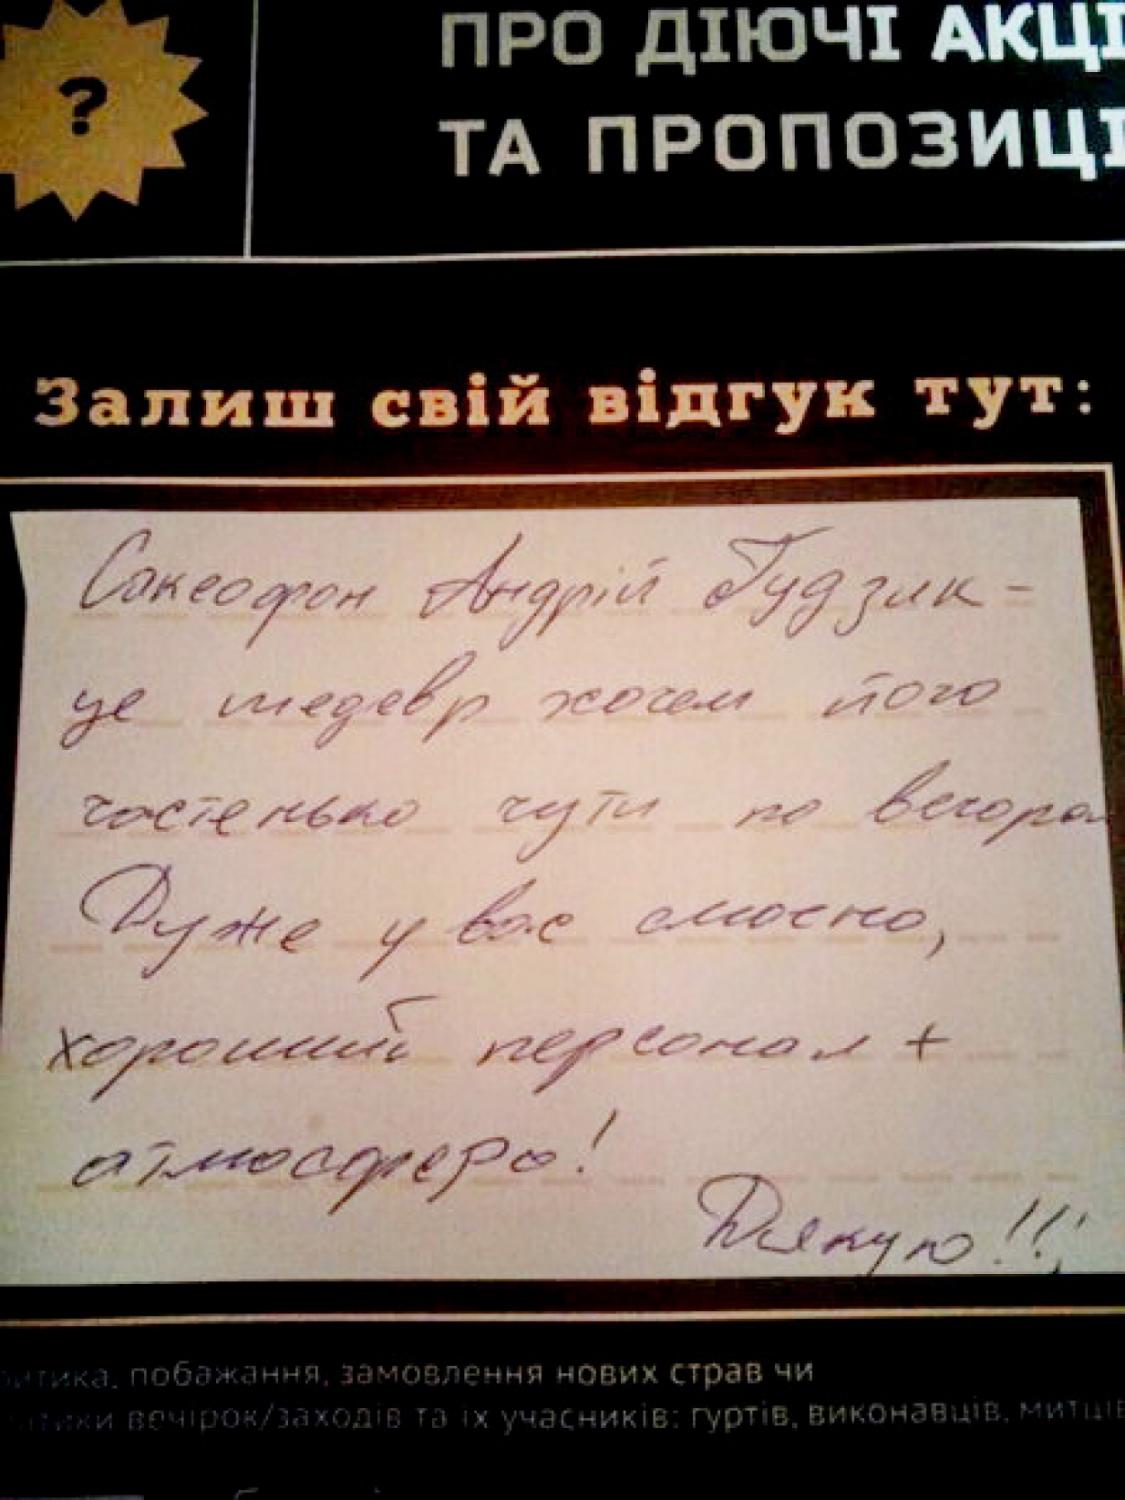 ?
ПРО ДІЮЧІ АКЦІ
ТА ПРОПОЗИЦІ
Залиш свій відгук тут:
Саксофон Андрій Гудзик -
це шедевр хочем його
частенько чути по вечорам
Дуже у вас смачно,
хороший персонал +
атмосфера!
Дякую!!!
итика, побажання, замовлення нових страв чи
тики вечірок/заходів та їх учасників: гуртів, виконавців, митців